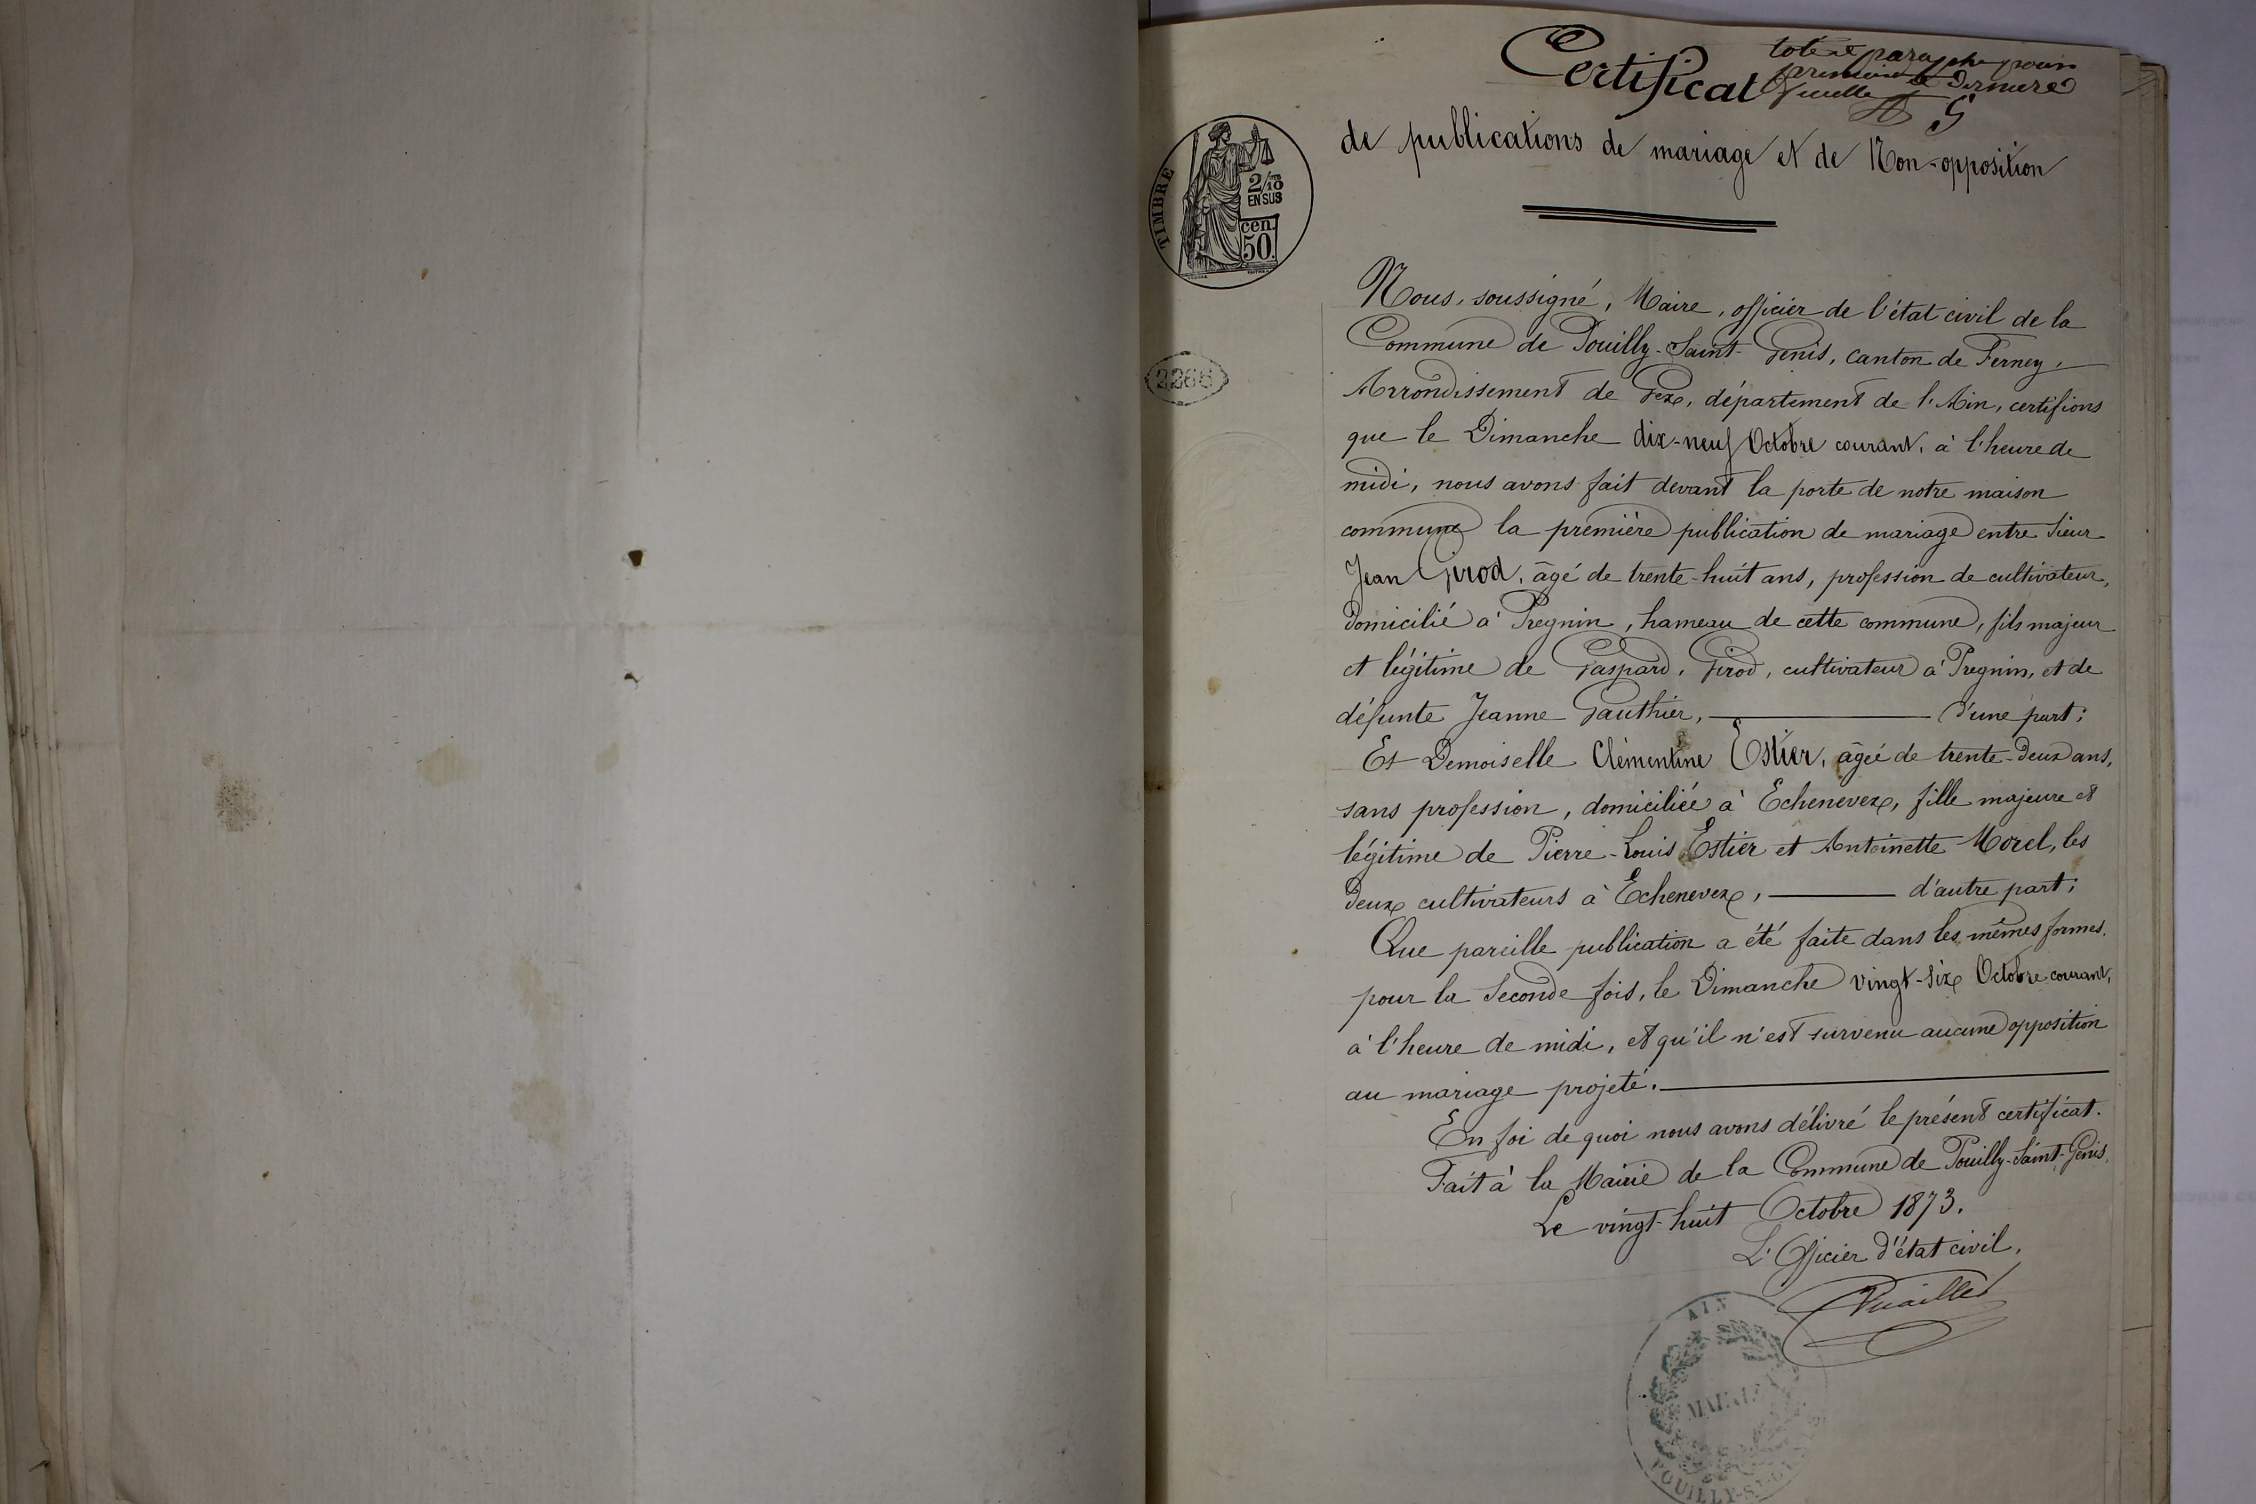 Certificat
coté et paraphé pour
première et dernière
feuille
G
de publications de mariage et de Non-opposition
TIMBRE
2/10
EN SUS
cen.
50.
2266
Nous, soussigné, Maire, officier de l'état civil de la
Commune de Pouilly-Saint-Genis, canton de Ferney,
Arrondissement de Gex, département de l'Ain, certifions
que le Dimanche dix-neuf Octobre courant, à l'heure de
midi, nous avons fait devant la porte de notre maison
commune la première publication de mariage entre Sieur
Jean Girod, âgé de trente-huit ans, profession de cultivateur,
domicilié à Pregnin, hameau de cette commune, fils majeur
et légitime de Gaspard Girod, cultivateur à Pregnin, et de
défunte Jeanne Gauthier, d'une part;
Et Demoiselle Clémentine Estier, âgée de trente-deux ans,
sans profession, domiciliée à Echenevex, fille majeure et
légitime de Pierre-Louis Estier et Antoinette Morel, les
deux cultivateurs à Echenevex, d'autre part;
Que pareille publication a été faite dans les mêmes formes,
pour la Seconde fois, le Dimanche vingt-six Octobre courant,
à l'heure de midi, et qu'il n'est survenu aucune opposition
au mariage projeté.
En foi de quoi nous avons délivré le présent certificat.
Fait à la Mairie de la Commune de Pouilly-Saint-Genis,
Le vingt-huit Octobre 1873.
L'Officier d'état civil,
AIN
MAIRIE
POUILLY-ST-GENIS